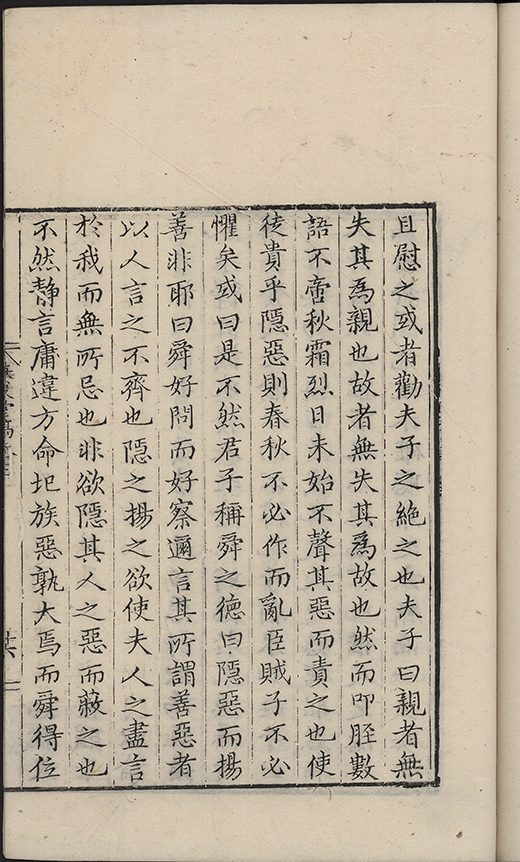 且慰之或者勸夫子之絶之也夫子曰親者無
失其爲親也故者無失其爲故也然而叩脛數
語不啻秋霜烈日未始不聲其惡而責之也使
徒貴乎隱惡則春秋不必作而亂臣賊子不必
懼矣或曰是不然君子稱舜之德曰隱惡而揚
善非耶曰舜好問而好察邇言其所謂善惡者
以人言之不齊也隱之揚之欲使夫人之盡言
於我而無所忌也非欲隱其人之惡而蔽之也
不然靜言庸違方命圯族惡孰大焉而舜得位